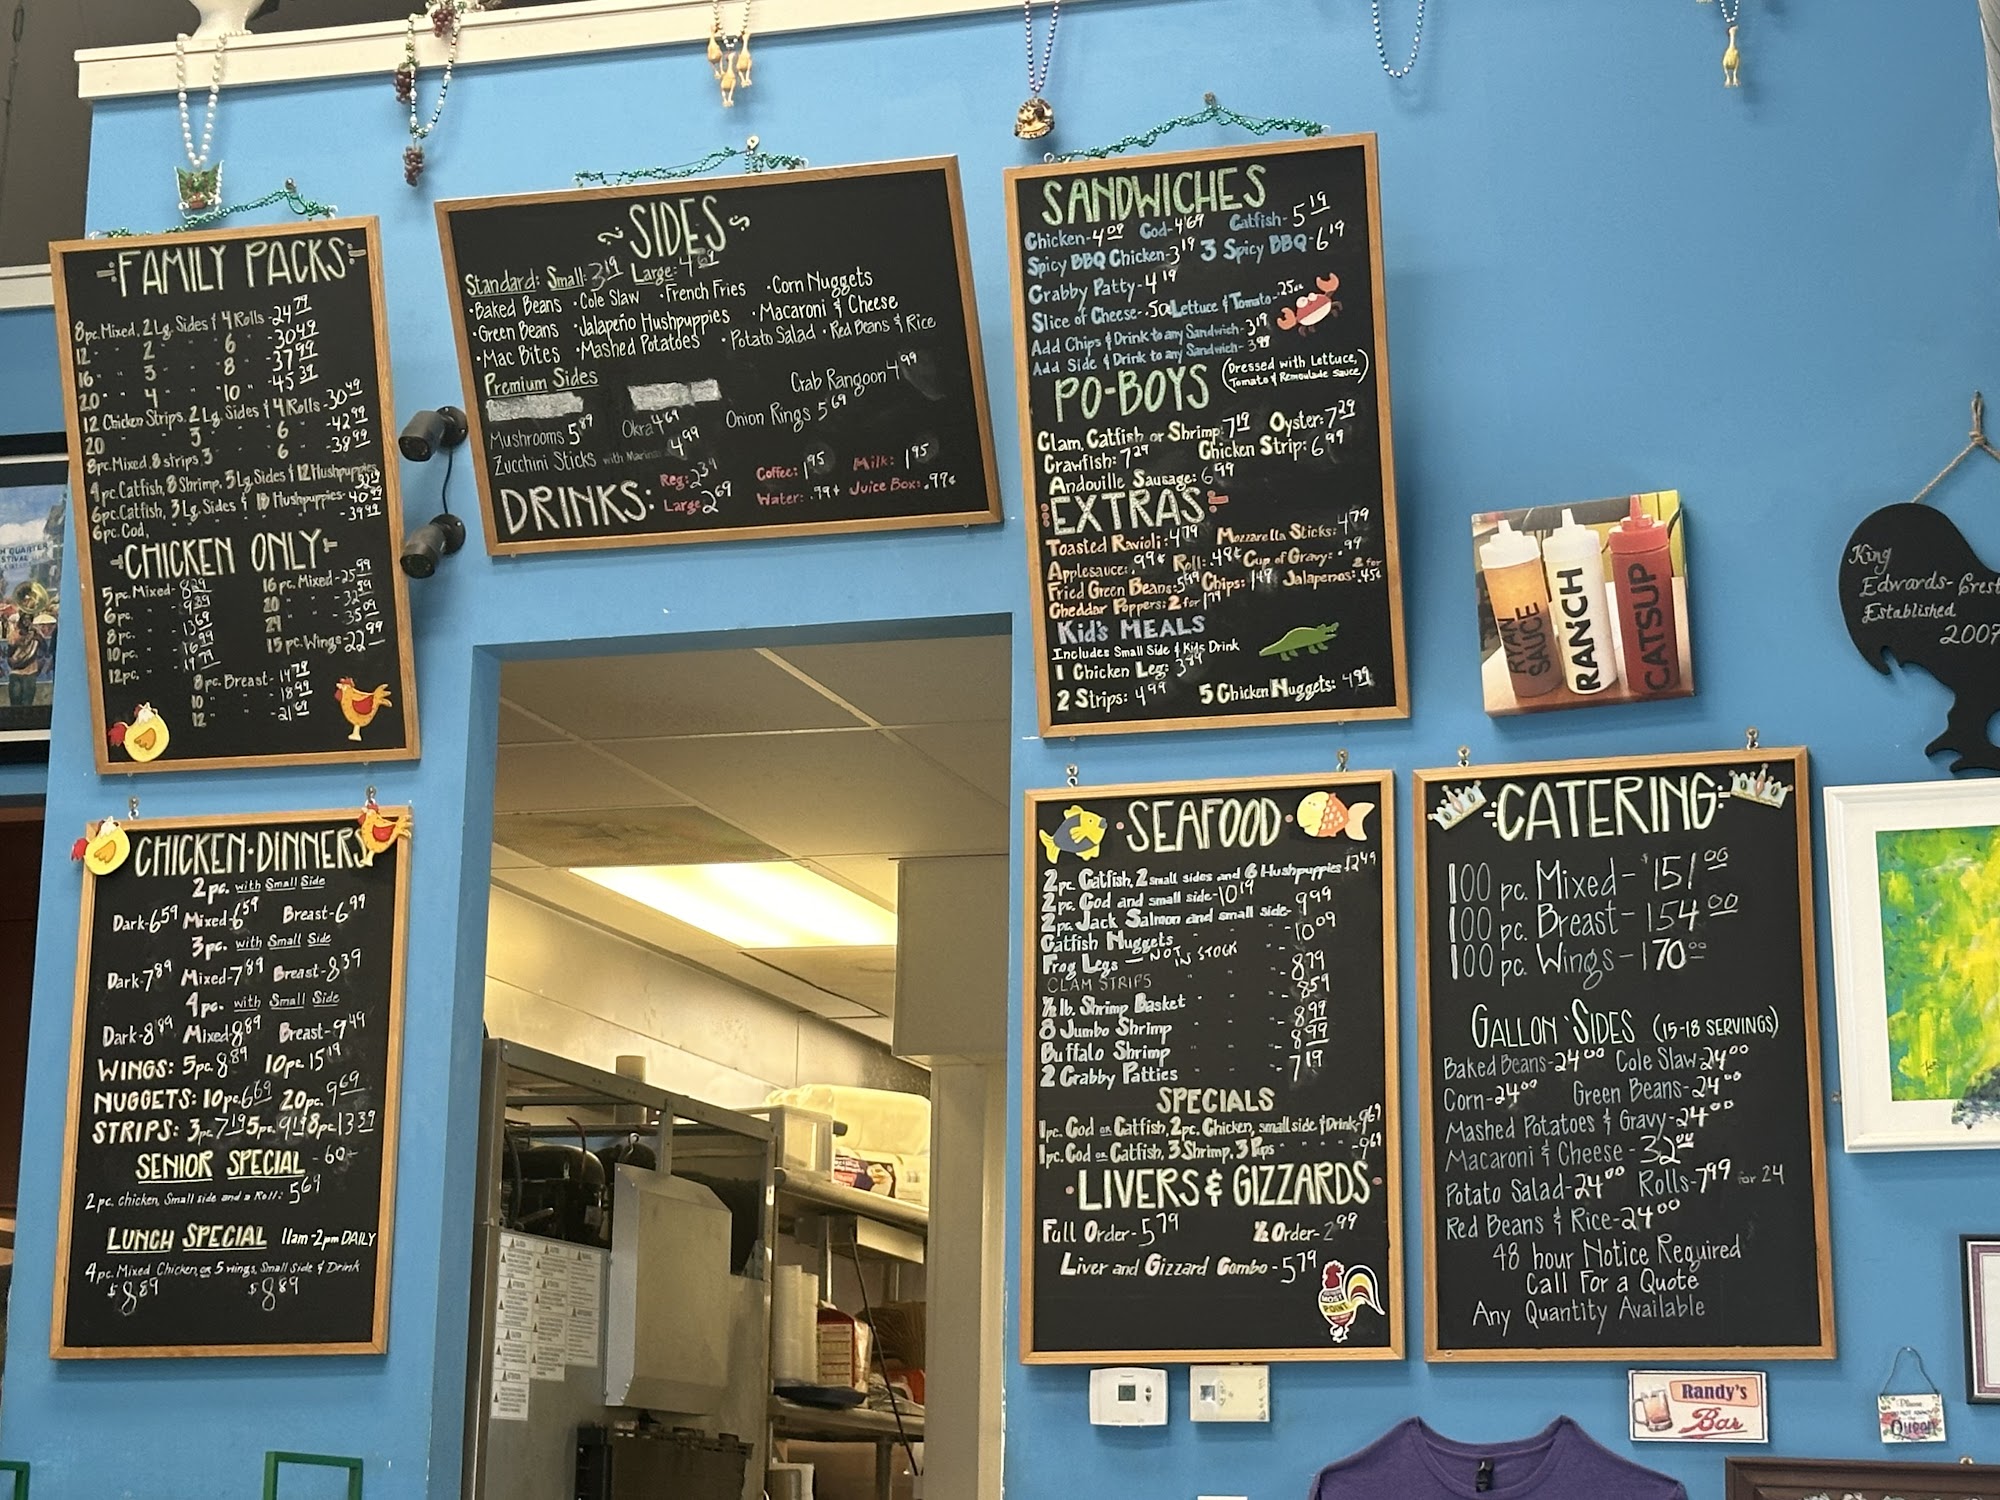 FAMILY PACKS
8pc. Mixed, 2 Lg. Sides & 4 Rolls - 24.79
12 " " 2 " " 6 " - 30.49
16 " " 3 " " 8 " - 37.99
20 " " 4 " " 10 " - 45.39
12 Chicken Strips, 2 Lg. Sides & 4 Rolls - 30.49
20 " " 3 " " 6 " - 42.99
8pc. Mixed, 8 strips, 3 " " 6 " - 38.99
4pc. Catfish, 8 Shrimp, 3 Lg. Sides & 12 Hushpuppies
6pc. Catfish, 3 Lg. Sides & 18 Hushpuppies - 40.99
6pc. Cod, " " " " - 39.99
CHICKEN ONLY
5pc. Mixed - 8.29 16pc. Mixed - 25.99
6pc. " - 9.39 20 " " - 32.59
8pc. " - 13.69 24 " " - 35.09
10pc. " - 16.99 15 pc. Wings - 22.99
12pc. " - 19.79
8pc. Breast - 14.79
10 " " - 18.99
12 " " - 21.69
SIDES
Standard: Small: 3.19 Large: 4.69
•Baked Beans •Cole Slaw •French Fries •Corn Nuggets
•Green Beans •Jalapeño Hushpuppies •Macaroni & Cheese
•Mac Bites •Mashed Potatoes •Potato Salad •Red Beans & Rice
Premium Sides
Crab Rangoon 4.99
Mushrooms 5.89 Okra 4.69 Onion Rings 5.69
Zucchini Sticks with Marinara 4.99
DRINKS: Reg: 2.39 Coffee: 1.95 Milk: 1.95
Large 2.69 Water: .99¢ Juice Box: .97¢
SANDWICHES
Chicken - 4.09 Cod - 4.69 Catfish - 5.19
Spicy BBQ Chicken - 3.19 3 Spicy BBQ - 6.19
Crabby Patty - 4.19
Slice of Cheese - .50 Lettuce & Tomato - .25ea
Add Chips & Drink to any Sandwich - 3.19
Add Side & Drink to any Sandwich - 3.99
PO-BOYS (Dressed with Lettuce, Tomato & Remoulade Sauce)
Clam, Catfish or Shrimp: 7.19 Oyster: 7.29
Crawfish: 7.29 Chicken Strip: 6.99
Andouille Sausage: 6.99
EXTRAS
Toasted Ravioli: 4.79 Mozzarella Sticks: 4.79
Applesauce: .99¢ Roll: .49¢ Cup of Gravy: .99
Fried Green Beans: 5.99 Chips: 1.49 Jalapenos: 2 for .45¢
Cheddar Poppers: 2 for 1.79
Kid's MEALS
Includes Small Side & Kids Drink
1 Chicken Leg: 3.99
2 Strips: 4.99 5 Chicken Nuggets: 4.99
RYAN SAUCE
RANCH
CATSUP
King
Edwards - Crest
Established
2007
CHICKEN•DINNERS
2pc. with Small Side
Dark - 6.59 Mixed - 6.59 Breast - 6.99
3pc. with Small Side
Dark - 7.89 Mixed - 7.89 Breast - 8.39
4pc. with Small Side
Dark - 8.89 Mixed 8.89 Breast - 9.49
WINGS: 5pc. 8.89 10pc. 15.19
NUGGETS: 10pc. 6.69 20pc. 9.69
STRIPS: 3pc. 7.19 5pc. 9.19 8pc. 13.39
SENIOR SPECIAL - 60+
2pc. chicken, Small side and a Roll: 5.69
LUNCH SPECIAL 11am-2pm DAILY
4pc. Mixed Chicken or 5 wings, Small Side & Drink
$8.89 $8.89
SEAFOOD
2pc. Catfish, 2 small sides and 6 Hushpuppies 12.49
2pc. Cod and small side - 10.19
2pc. Jack Salmon and small side - 9.99
Catfish Nuggets " " - 10.09
Frog Legs — NOT IN STOCK
CLAM STRIPS " " - 8.79
½ lb. Shrimp Basket " " - 8.59
8 Jumbo Shrimp " " - 8.99
Buffalo Shrimp " " 8.99
2 Crabby Patties " " 7.19
SPECIALS
1pc. Cod or Catfish, 2pc. Chicken, small side & Drink - 9.69
1pc. Cod or Catfish, 3 Shrimp, 3 Pups " " " 9.69
LIVERS & GIZZARDS
Full Order - 5.79 ½ Order - 2.99
Liver and Gizzard Combo - 5.79
CATERING
100 pc. Mixed - $151.00
100 pc. Breast - 154.00
100 pc. Wings - 170.00
GALLON SIDES (15-18 SERVINGS)
Baked Beans - 24.00 Cole Slaw - 24.00
Corn - 24.00 Green Beans - 24.00
Mashed Potatoes & Gravy - 24.00
Macaroni & Cheese - 32.00
Potato Salad - 24.00 Rolls - 7.99 for 24
Red Beans & Rice - 24.00
48 hour Notice Required
Call For a Quote
Any Quantity Available
Randy's
Bar
Queen